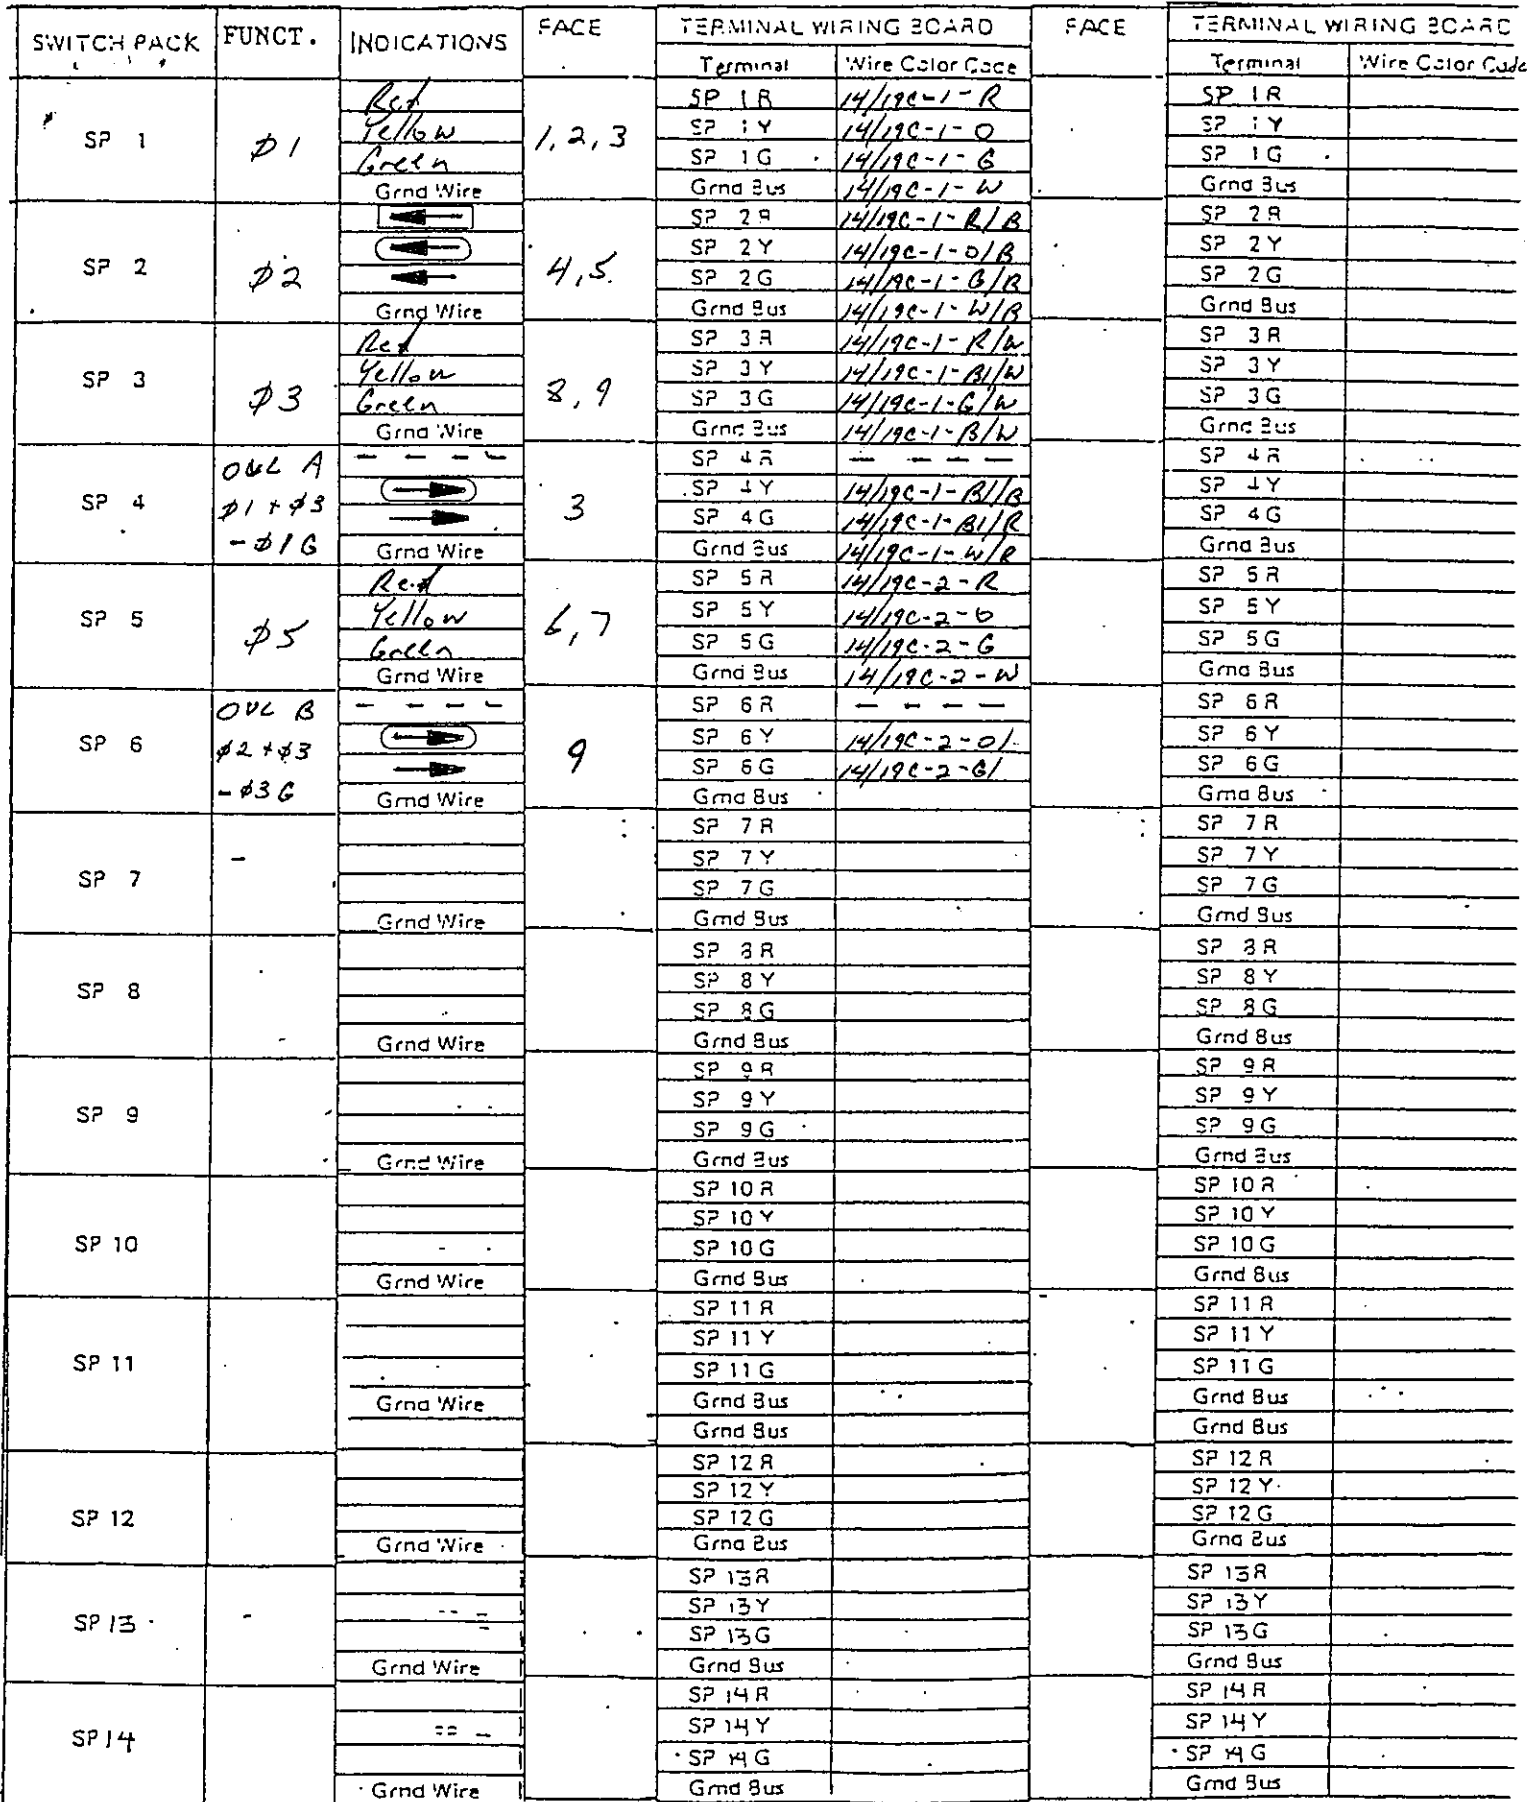 SWITCH PACK FUNCT. INDICATIONS FACE TERMINAL WIRING BOARD FACE TERMINAL WIRING BOARD
Terminal Wire Color Code Terminal Wire Color Code
SP 1 φ1 1,2,3
Red SP 1R 14/19C-1-R SP 1R
Yellow SP 1Y 14/19C-1-O SP 1Y
Green SP 1G 14/19C-1-G SP 1G
Grnd Wire Grnd Bus 14/19C-1-W Grnd Bus
SP 2 φ2 4,5
SP 2R 14/19C-1-R/B SP 2R
SP 2Y 14/19C-1-O/B SP 2Y
SP 2G 14/19C-1-G/B SP 2G
Grnd Wire Grnd Bus 14/19C-1-W/B Grnd Bus
SP 3 φ3 8,9
Red SP 3R 14/19C-1-R/W SP 3R
Yellow SP 3Y 14/19C-1-Bl/W SP 3Y
Green SP 3G 14/19C-1-G/W SP 3G
Grnd Wire Grnd Bus 14/19C-1-B/W Grnd Bus
SP 4 OVL A φ1+φ3 -φ1G 3
- - - - SP 4R - - - - SP 4R
SP 4Y 14/19C-1-Bl/B SP 4Y
SP 4G 14/19C-1-Bl/R SP 4G
Grnd Wire Grnd Bus 14/19C-1-W/R Grnd Bus
SP 5 φ5 6,7
Red SP 5R 14/19C-2-R SP 5R
Yellow SP 5Y 14/19C-2-O SP 5Y
Green SP 5G 14/19C-2-G SP 5G
Grnd Wire Grnd Bus 14/19C-2-W Grnd Bus
SP 6 OVL B φ2+φ3 -φ3G 9
- - - - SP 6R - - - - SP 6R
SP 6Y 14/19C-2-O/ SP 6Y
SP 6G 14/19C-2-G/ SP 6G
Grnd Wire Grnd Bus Grnd Bus
SP 7 -
SP 7R SP 7R
SP 7Y SP 7Y
SP 7G SP 7G
Grnd Wire Grnd Bus Grnd Bus
SP 8
SP 8R SP 8R
SP 8Y SP 8Y
SP 8G SP 8G
Grnd Wire Grnd Bus Grnd Bus
SP 9
SP 9R SP 9R
SP 9Y SP 9Y
SP 9G SP 9G
Grnd Wire Grnd Bus Grnd Bus
SP 10
SP 10R SP 10R
SP 10Y SP 10Y
SP 10G SP 10G
Grnd Wire Grnd Bus Grnd Bus
SP 11
SP 11R SP 11R
SP 11Y SP 11Y
SP 11G SP 11G
Grnd Wire Grnd Bus Grnd Bus
Grnd Bus Grnd Bus
SP 12
SP 12R SP 12R
SP 12Y SP 12Y
SP 12G SP 12G
Grnd Wire Grnd Bus Grnd Bus
SP 13
SP 13R SP 13R
SP 13Y SP 13Y
SP 13G SP 13G
Grnd Wire Grnd Bus Grnd Bus
SP 14
SP 14R SP 14R
SP 14Y SP 14Y
SP 14G SP 14G
Grnd Wire Grnd Bus Grnd Bus